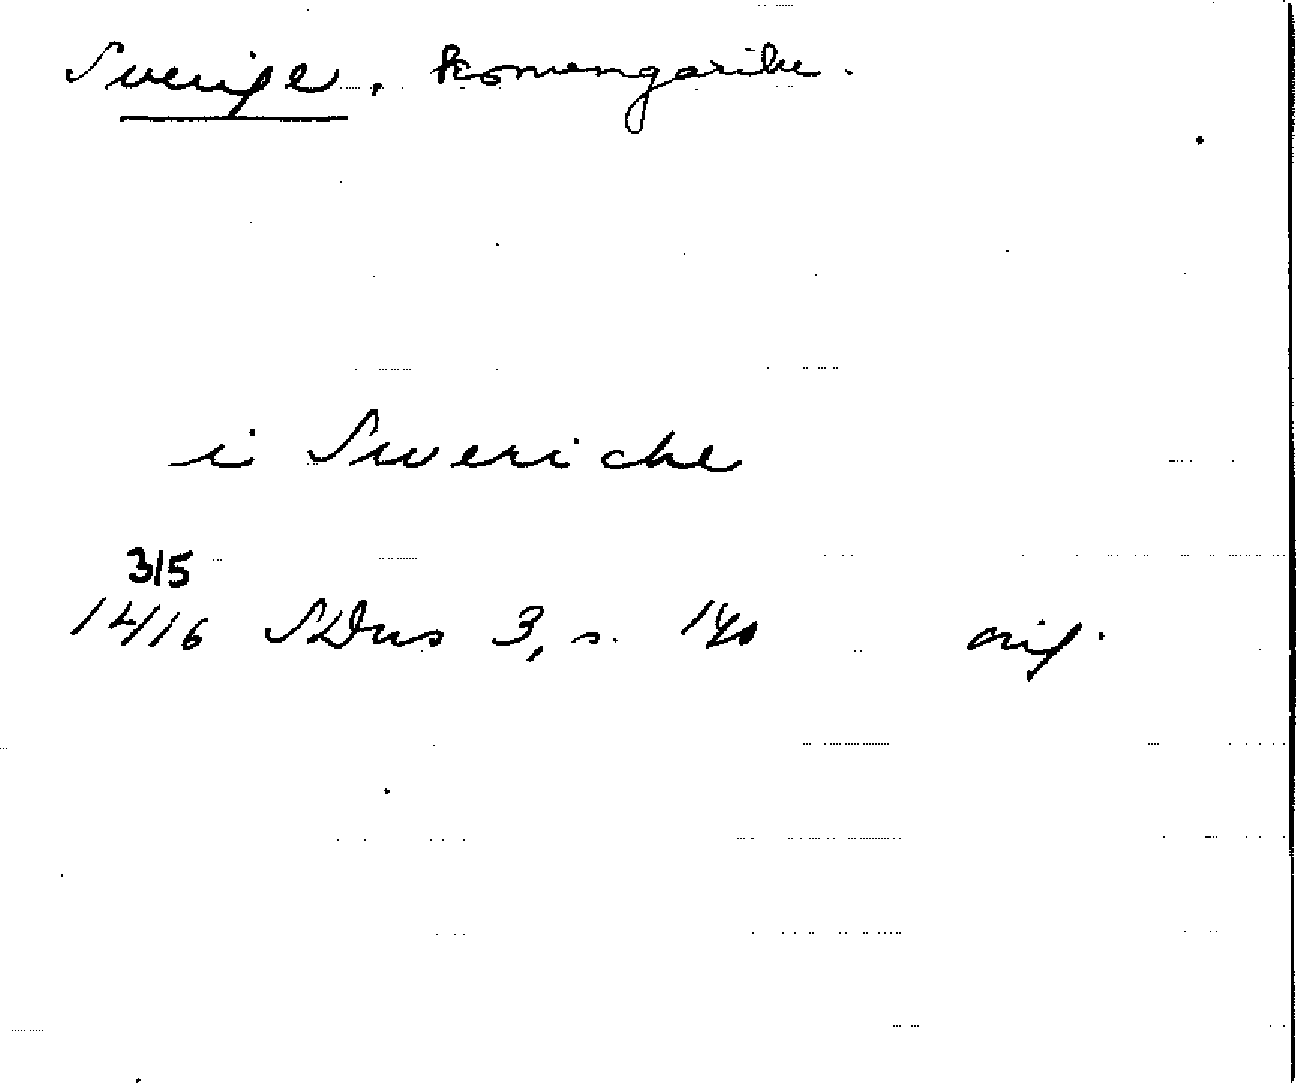 Sverige, konungarike.
i Sweriche
3/5
1416 SDns 3, s. 140 orig.